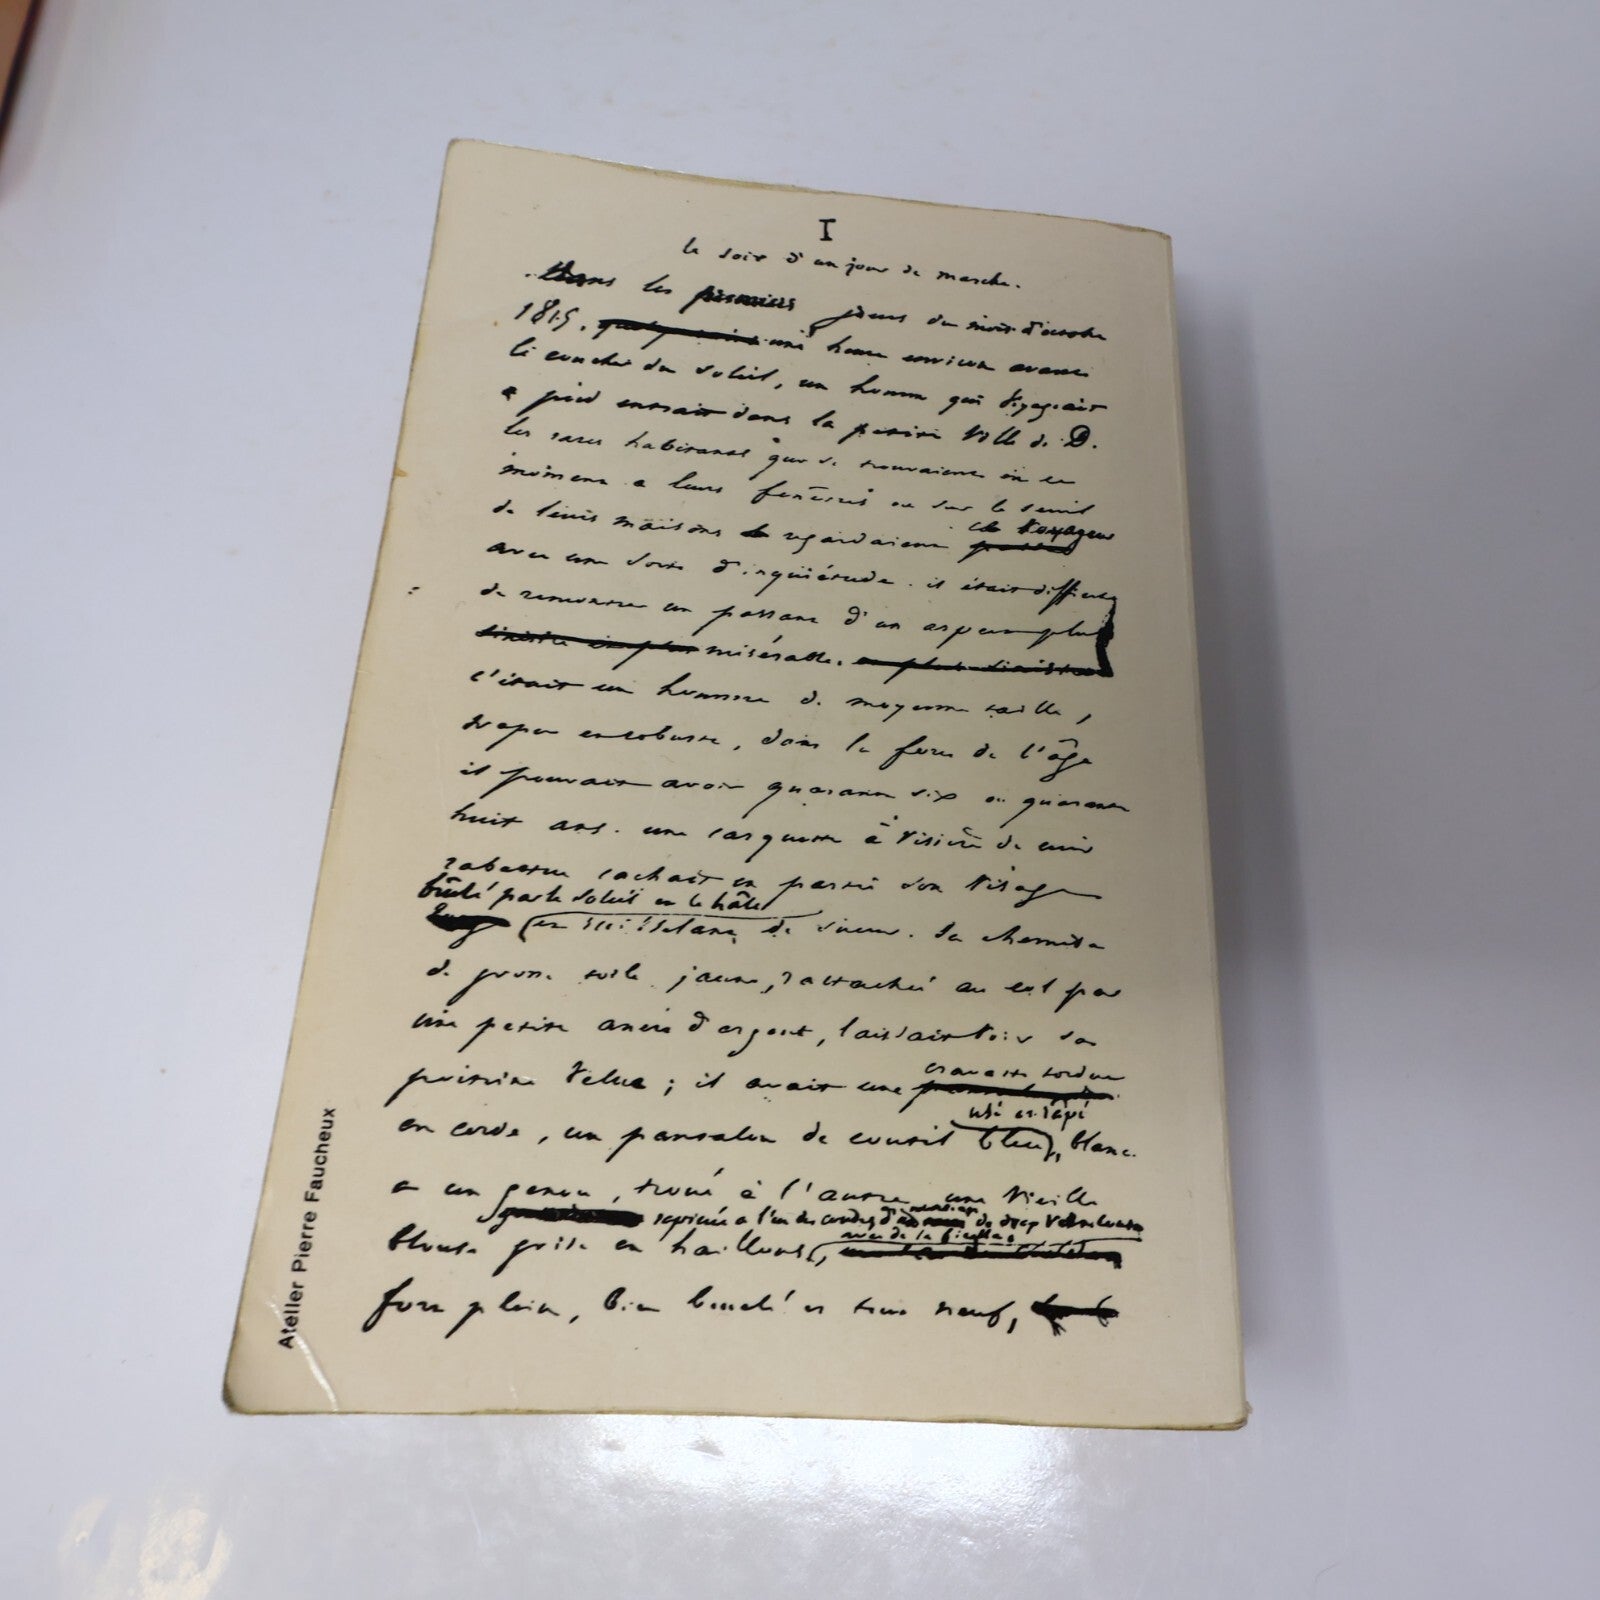 I
le soir d'un jour de marche.
Dans les premiers jours du mois d'octobre
1815, une heure environ avant
le coucher du soleil, un homme qui voyageait
à pied entrait dans la petite ville de D.
les rares habitants qui se trouvaient en ce
moment à leurs fenêtres ou sur le seuil
de leurs maisons regardaient ce voyageur
avec une sorte d'inquiétude. il était difficile
de rencontrer un passant d'un aspect plus
misérable.
c'était un homme de moyenne taille,
trapu et robuste, dans la force de l'âge
il pouvait avoir quarante six ou quarante
huit ans. une casquette à visière de cuir
rabattue cachait en partie son visage
brûlé par le soleil et le hâle
et ruisselant de sueur. Sa chemise
de grosse toile jaune, rattachée au col par
une petite ancre d'argent, laissait voir sa
poitrine velue ; il avait une cravate tordue
en corde, un pantalon de coutil bleu, usé et râpé, blanc
à un genou, troué à l'autre, une vieille
blouse grise en haillons, rapiécée à l'un des coudes d'un morceau de drap vert cousu
avec de la ficelle
fort plein, bien bouclé et tout neuf,
Atelier Pierre Faucheux